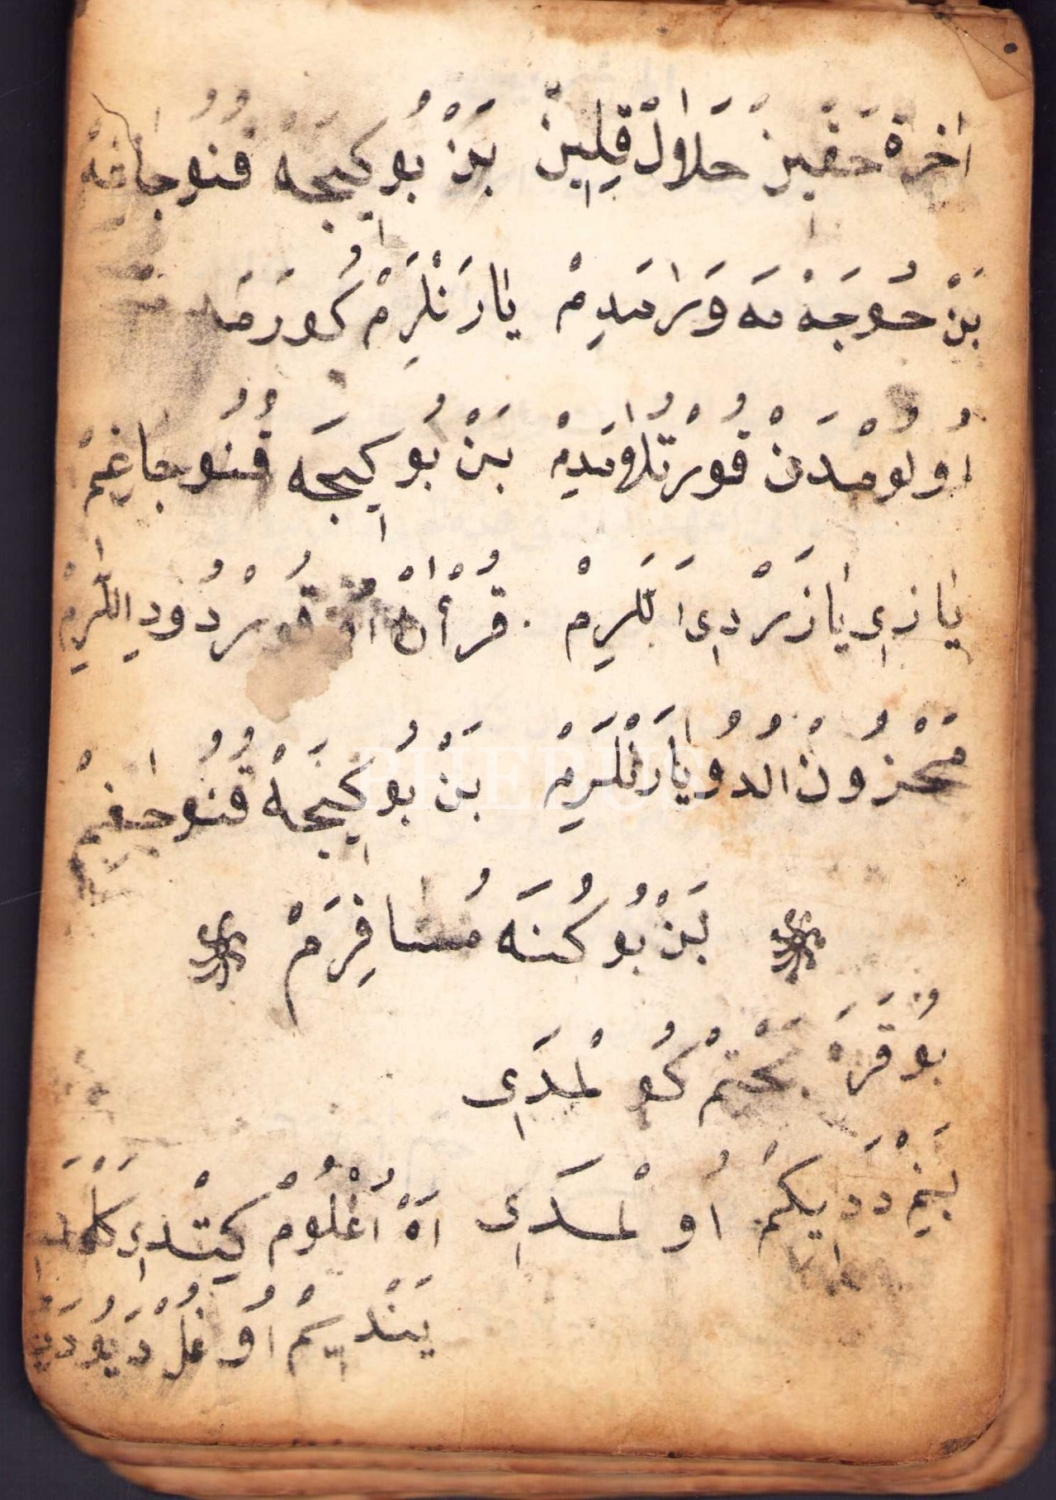 اٰخِرَة حَقِّيزْ حَلَاوَلْ قِلِيڭْ بَنْ بُو كِيجَه قُنُوجَاغِمْ
بَنْ حُوجَهْ مَه وَرَامَدِمْ يَارَنْلَرِمْ كُورَمَه
اُولُومْدَنْ قُورْتُلَامَدِمْ بَنْ بُو كِيجَه قُنُوجَاغِمْ
يَازِى يَازَرْدِى اَللَّرِمْ قُرْأٰنْ اُوقُورْدُو دِاللَّرِمْ
مَحْزُونْ اُلْدُو يَارَنْلَرِمْ بَنْ بُو كِيجَهْ قُنُوجَغِمْ
بَنْ بُو كُنَه مُسَافِرَمْ
بُو قَرَهْ بَخْتِمْ كُو لْمَدِى
بَنِمْ دَدِيكِمْ اُو لْمَدِى اَهْ اُغْلُومْ كِتْدِى كَلْمَدِى
يَنْدِيمْ اُوغُلْ دَيُو دَيُو